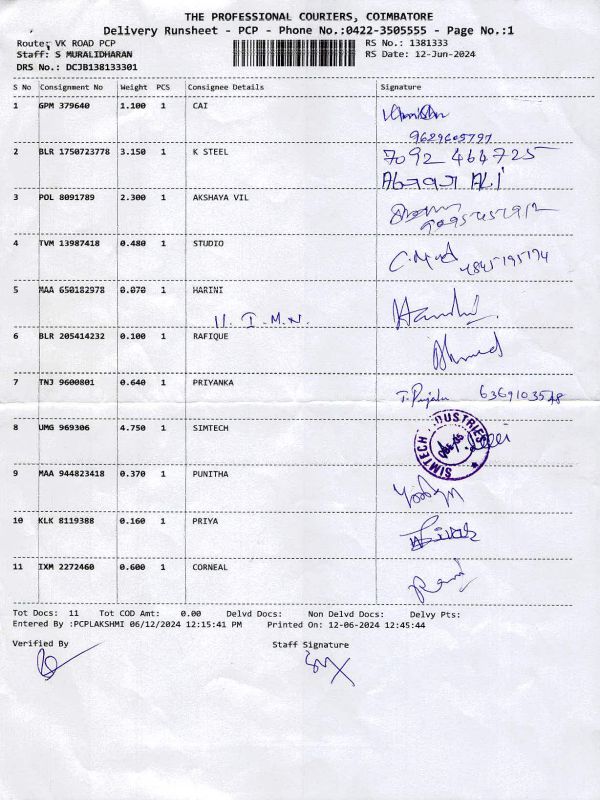 THE PROFESSIONAL COURIERS, COIMBATORE
Delivery Runsheet - PCP - Phone No.:0422-3505555 - Page No.:1
Route: VK ROAD PCP RS No.: 1381333
Staff: S MURALIDHARAN RS Date: 12-Jun-2024
DRS No.: DCJB138133301
S No Consignment No Weight PCS Consignee Details Signature
1 GPM 379640 1.100 1 CAI
9629605797
2 BLR 1750723778 3.150 1 K STEEL 7092 464725
ALI
3 POL 8091789 2.300 1 AKSHAYA VIL
4 TVM 13987418 0.480 1 STUDIO
5 MAA 650182978 0.070 1 HARINI
U. I. M. N.
6 BLR 205414232 0.100 1 RAFIQUE Ahmed
7 TNJ 9600801 0.640 1 PRIYANKA 6369103548
8 UMG 969306 4.750 1 SIMTECH SIMTECH INDUSTRIES
9 MAA 944823418 0.370 1 PUNITHA
10 KLK 8119388 0.160 1 PRIYA
11 IXM 2272460 0.600 1 CORNEAL
Tot Docs: 11 Tot COD Amt: 0.00 Delvd Docs: Non Delvd Docs: Delvy Pts:
Entered By :PCPLAKSHMI 06/12/2024 12:15:41 PM Printed On: 12-06-2024 12:45:44
Verified By Staff Signature